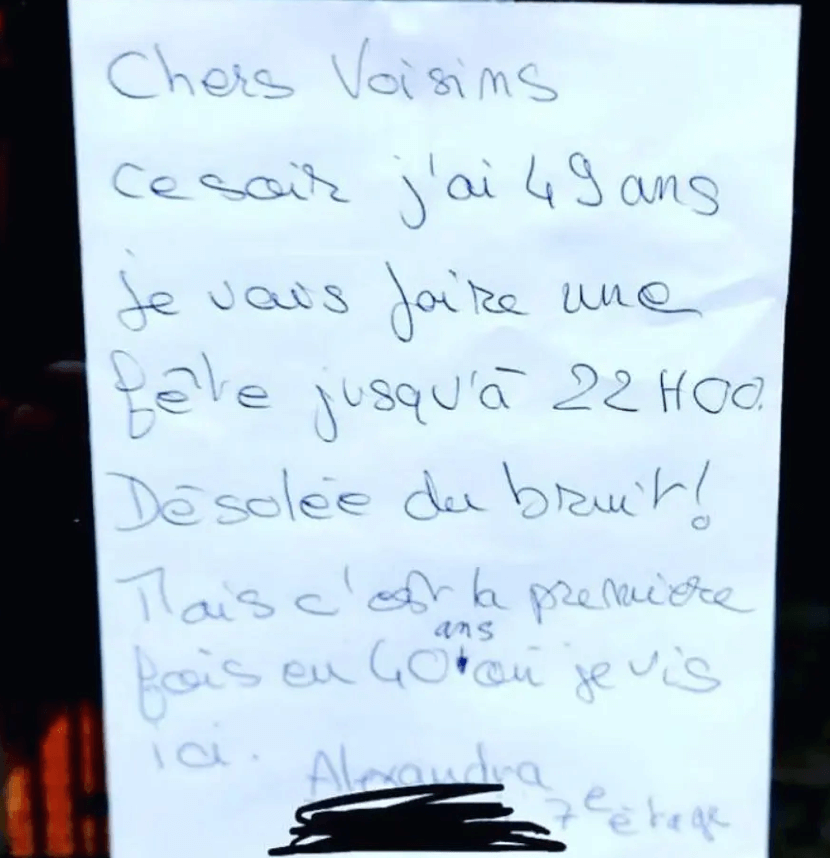 Chers Voisins
Ce soir j'ai 49 ans
je vais faire une
fête jusqu'à 22H00.
Désolée du bruit!
Mais c'est la première
fois en 40 ans où je vis
ici.
Alexandra
7e étage